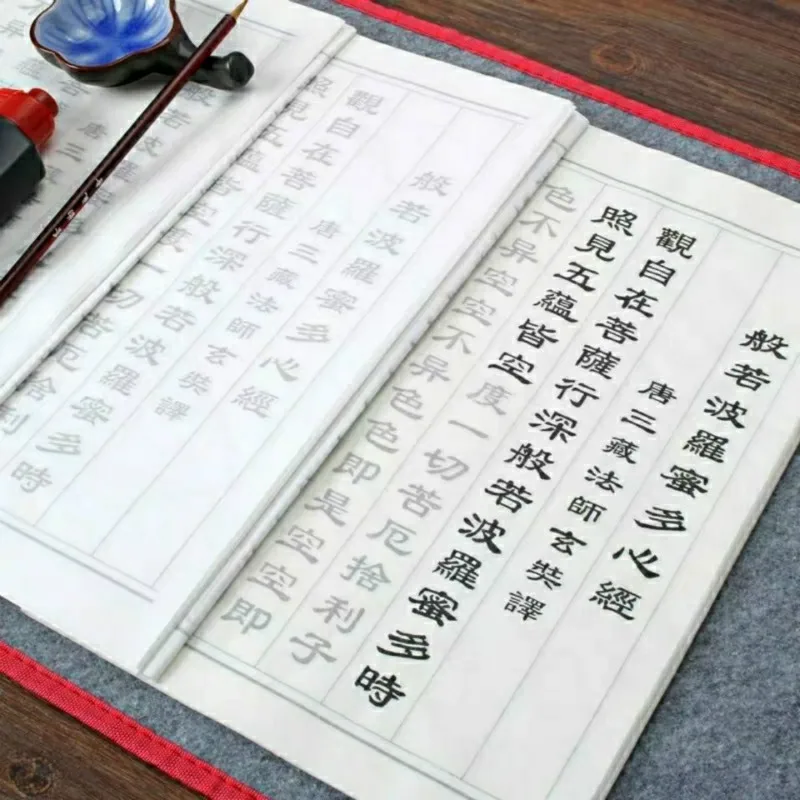 般若波羅蜜多心經
唐三藏法師玄奘譯
觀自在菩薩行深般若波羅蜜多時
照見五蘊皆空度一切苦厄捨利子
色不异空空不异色色即是空空即
般若波羅蜜多心經
唐三藏法師玄奘譯
觀自在菩薩行深般若波羅蜜多時
照見五蘊皆空度一切苦厄捨利
般若波
唐三